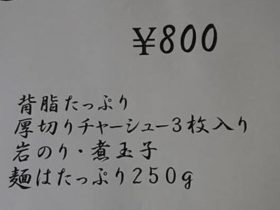 ¥800
背脂たっぷり
厚切りチャーシュー3枚入り
岩のり・煮玉子
麺はたっぷり250g